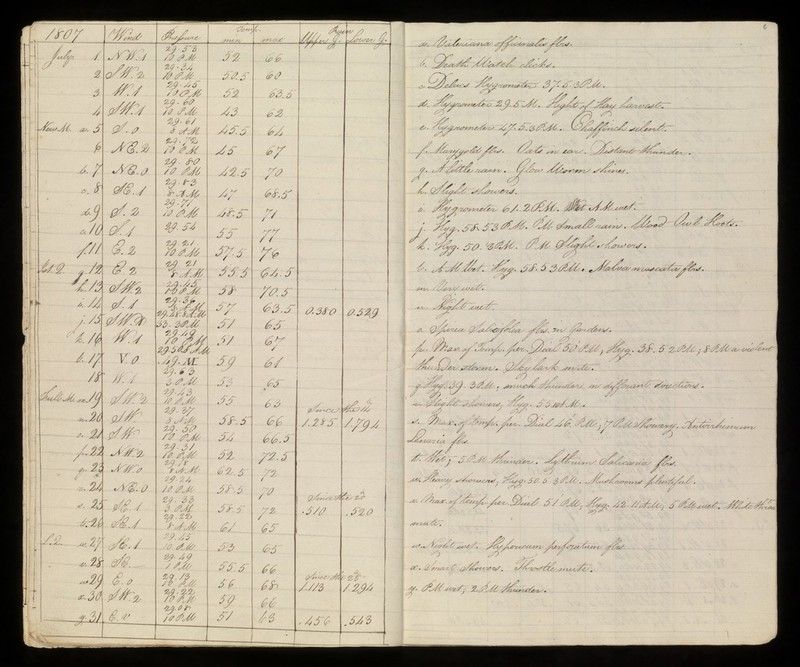 1807 Wind Pressure Temp. min max Rain Upper G. Lower G.
July 1. NW.1 29.53 10 P.M 52 66
2 SW.2 29.34 10 P.M 50.5 60
3 W.1 29.45 10 P.M 52 63.5
4 SW.1 29.60 10 P.M 43 62
New M. a. 5 S.0 29.61 8 A.M 45.5 64
6 NE.2 29.72 10 P.M 45 67
b. 7 NE.0 29.80 10 P.M 42.5 70
c. 8 SE.1 29.83 8 A.M 47 68.5
d. 9 S.2 29.71 10 P.M 48.5 71
e. 10 S.1 29.54 55 77
f. 11 E.2 29.21 10 P.M 57.5 76
1st Q. g. 12 E.2 29.21 8 A.M 55.5 64.5
h. 13 SW2 29.45 10 P.M 58 70.5
i. 14 S.1 29.36 57 63.5 0.380 0.529
j. 15 SW 51 65
k. 16 W.1 29.49 10 P.M 51 67
l. 17 V.0 59 61
18 W.1 29.63 3 P.M 53 65
Full M. m. 19 SW.2 29.43 10 P.M 55 63 Since the 14
n. 20 SW 29.37 8 A.M 58.5 66 1.285 1.794
o. 21 SW 29.50 10 P.M 54 66.5
p. 22 NW.2 29.31 10 P.M 52 72.5
q. 23 NW.0 29.18 8 A.M 62.5 72
r. 24 NE.0 29.24 10 P.M 58.5 70 Since the 20
s. 25 SE.1 29.33 3 P.M 58.5 72 .510 .520
t. 26 SE.1 29.22 8 A.M 61 65
L.Q. u. 27 SE.1 29.45 10 P.M 53 65
v. 28 SE. 29.49 1 P.M 55.5 66
w. 29 E.0 29.13 10 P.M 56 68 Since the 25
x. 30 SW.2 29.22 10 P.M 59 66 1.113 1.294
y. 31 E.0 29.08 10 P.M 51 63 .456 .543
a. Valeriana officinalis flrs.
b. Death Watch clicks.
c. Delucs Hygrometer 37.5. 3 P.M.
d. Hygrometer 29. 5 P.M. Height of Hay harvest.
e. Hygrometer 47.5. 3 P.M. Chaffinch silent.
f. Marygold flrs. Oats in ear. Distant thunder.
g. A little rain. Glow Worm shines.
h. Slight showers.
i. Hygrometer 61. 2 P.M. A.M wet.
j. Hyg. 58.5 3 P.M. P.M small rain. Wood Owl Hoots.
k. Hyg. 50. 3 P.M. P.M Slight showers.
l. A.M Wet. Hyg. 58.5 3 P.M. Malva moscata flrs.
m. Very wet.
n. Night wet.
o. Spirea Salicifolia flrs. in Gardens.
p. Max. of Temp. per Diem 50 P.M, Hyg. 38.5 2 P.M; 8 P.M a violent
thunder storm. Skylark mute.
q. Hyg. 39. 3 P.M, much thunder, in different directions.
r. Slight showers, Hyg. 53
s. Max. of Temp. per Diem 46. P.M; 7 P.M Showery. Antirrhinum
Linaria flrs.
t. Wet; 5 P.M thunder. Lythrum Salicaria flrs.
u. Heavy showers, Hyg. 50.5 3 P.M. Mushrooms plentiful.
v. Max. of Temp. per Diem 51 P.M, Hyg. 42. 11 A.M, 5 P.M wet. White throat
mute.
w. Night wet. Hypericum perforatum flrs
x. Smart Showers. Throstle mute.
y. P.M wet, 2 P.M thunder.